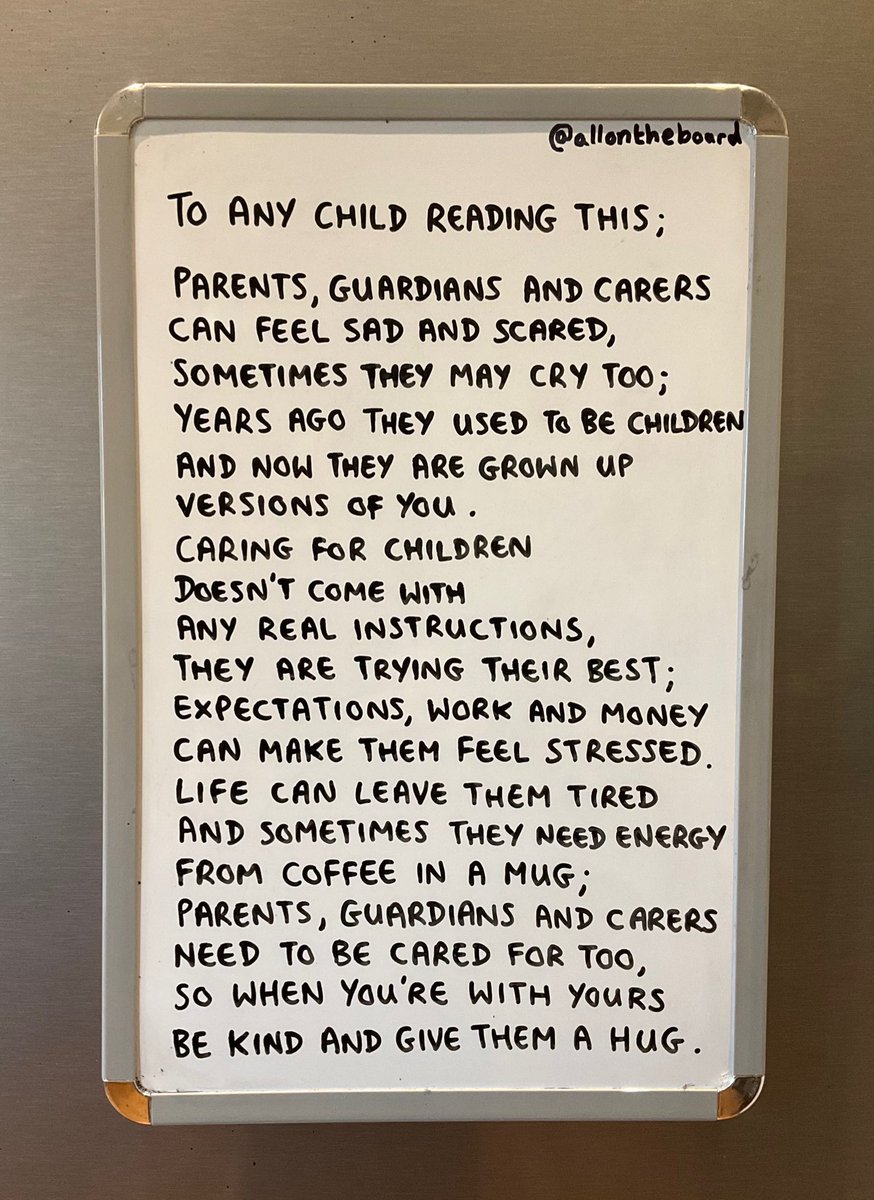 @allontheboard
TO ANY CHILD READING THIS;
PARENTS, GUARDIANS AND CARERS
CAN FEEL SAD AND SCARED,
SOMETIMES THEY MAY CRY TOO;
YEARS AGO THEY USED TO BE CHILDREN
AND NOW THEY ARE GROWN UP
VERSIONS OF YOU.
CARING FOR CHILDREN
DOESN'T COME WITH
ANY REAL INSTRUCTIONS,
THEY ARE TRYING THEIR BEST;
EXPECTATIONS, WORK AND MONEY
CAN MAKE THEM FEEL STRESSED.
LIFE CAN LEAVE THEM TIRED
AND SOMETIMES THEY NEED ENERGY
FROM COFFEE IN A MUG;
PARENTS, GUARDIANS AND CARERS
NEED TO BE CARED FOR TOO,
SO WHEN YOU'RE WITH YOURS
BE KIND AND GIVE THEM A HUG.